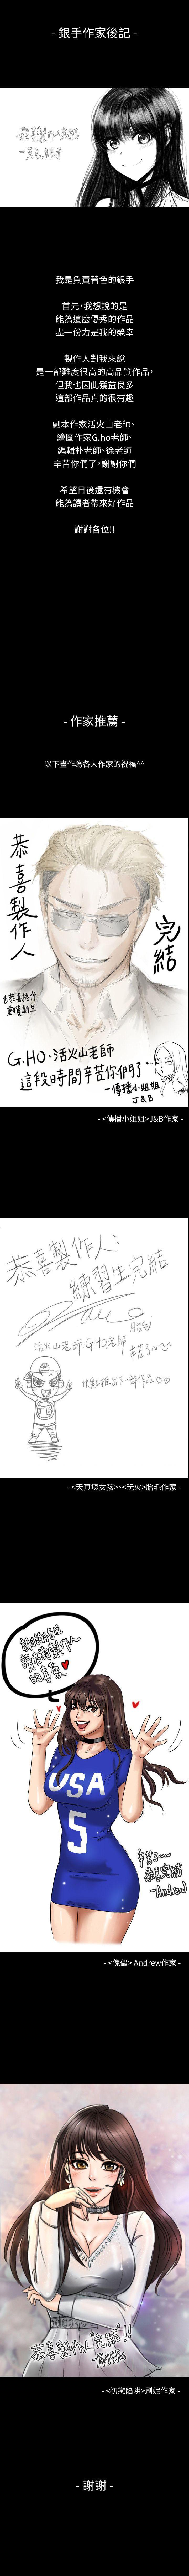 - 銀手作家後記 -
恭喜製作人完結
我是負責著色的銀手
首先，我想說的是
能為這麼優秀的作品
盡一份力是我的榮幸
製作人對我來說
是一部難度很高的高品質作品，
但我也因此獲益良多
這部作品真的很有趣
劇本作家活火山老師、
繪圖作家G.ho老師、
編輯朴老師、徐老師
辛苦你們了，謝謝你們
希望日後還有機會
能為讀者帶來好作品
謝謝各位!!
- 作家推薦 -
以下畫作為各大作家的祝福^^
恭喜製作人
完結
G.HO、活火山老師
這段時間辛苦你們了~
-傳播小姐姐
J&B
- <傳播小姐姐>J&B作家 -
恭喜製作人:
練習生完結
胎毛
活火山老師 G.HO老師
- <天真壞女孩>、<玩火>胎毛作家 -
USA
5
辛苦了~~
恭喜完結
-Andrew
- <傀儡> Andrew作家 -
恭喜製作人"完結"!!
- <初戀陷阱>刷妮作家 -
- 謝謝 -